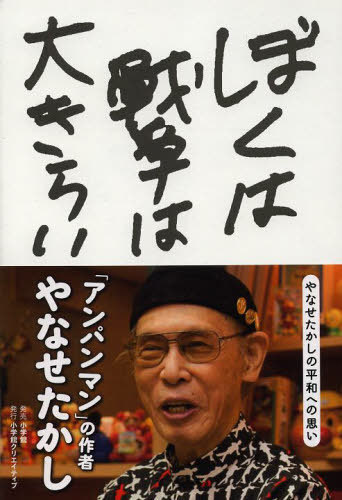 ぼくは
戦争は
大きらい
やなせたかしの平和への思い
「アンパンマン」の作者
やなせたかし
発売 小学館
発行 小学館クリエイティブ